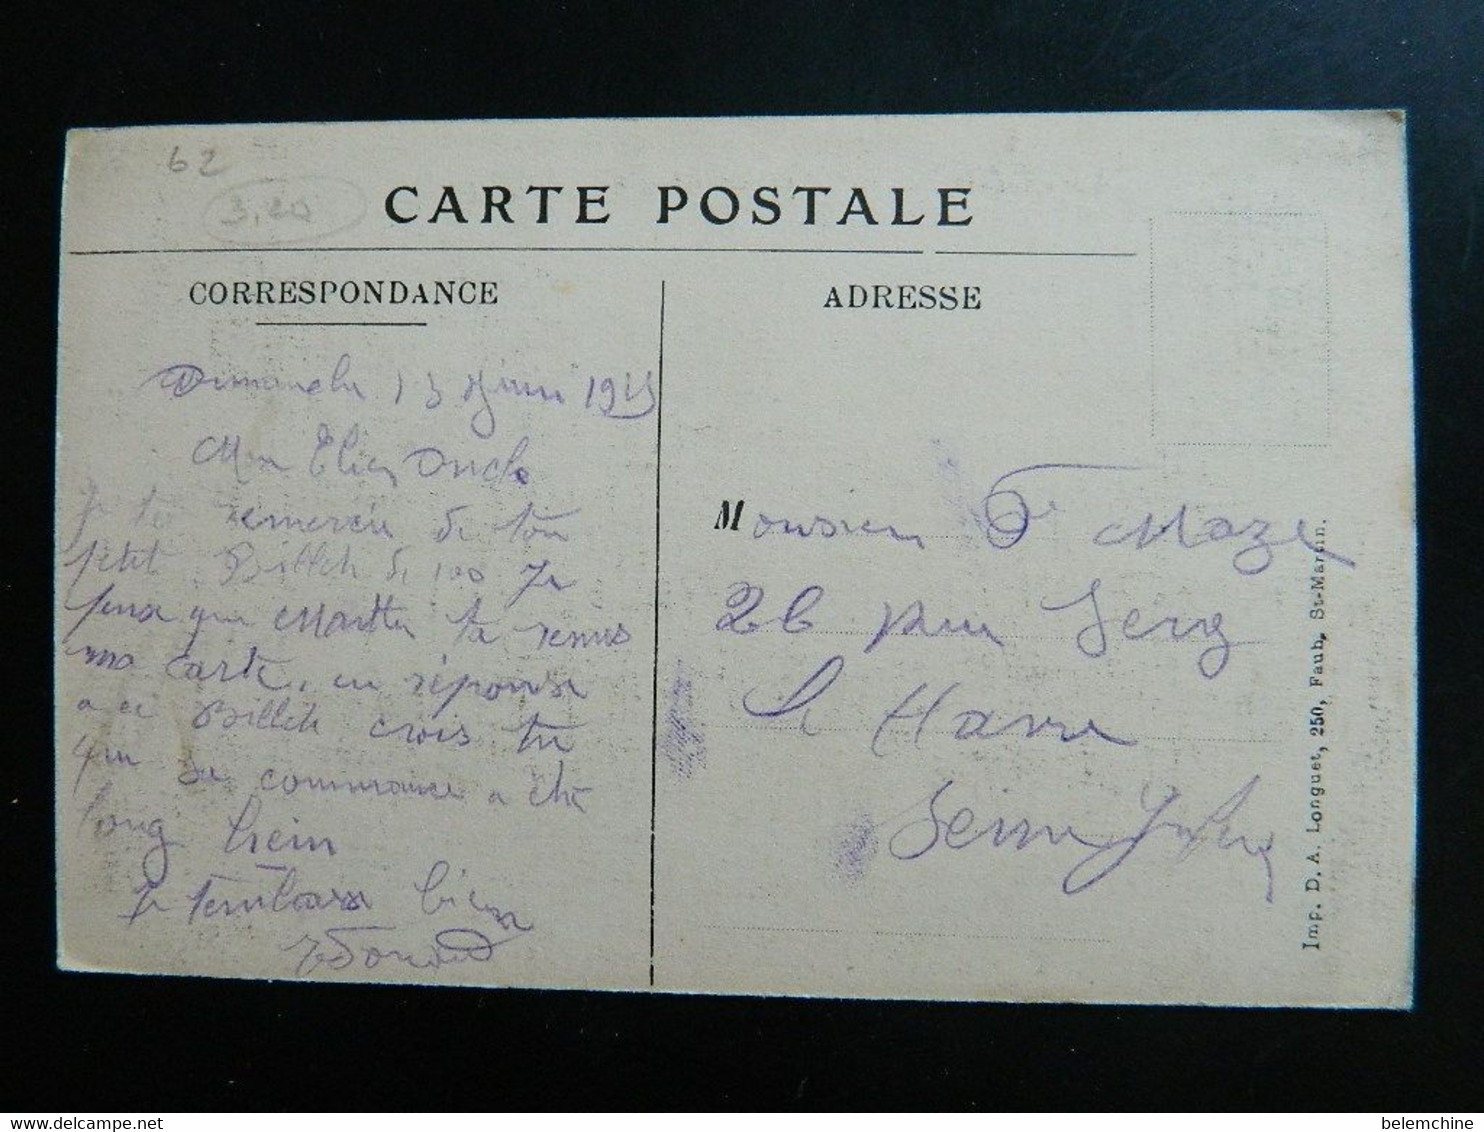 62
3,20
CARTE POSTALE
CORRESPONDANCE
ADRESSE
Dimanche 13 Juin 1915
Mon Cher Oncle
Je te remercie de ton
petit Billet de 100 Je
pense que Marthe ta remis
ma Carte, en réponse
a ce Billet crois tu
que sa commance a être
long hein
Je tembrasse bien
Edouard
Monsieur F Maze
26 rue Jerig
Le Havre
Seine Infre
Imp. D. A. Longuet, 250, Faub. St-Martin.
belemchine